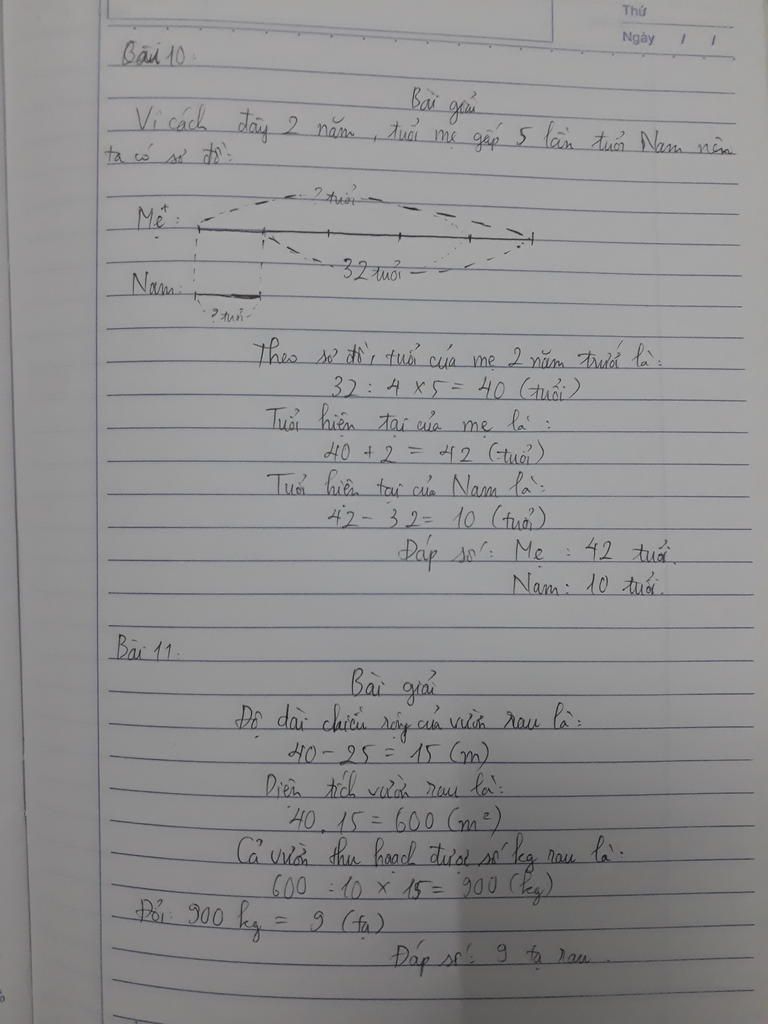 Thứ
Ngày / /
Bài 10:
Bài giải
Vì cách đây 2 năm, tuổi mẹ gấp 5 lần tuổi Nam nên
ta có sơ đồ:
? tuổi
Mẹ:
32 tuổi
Nam:
? tuổi
Theo sơ đồ, tuổi của mẹ 2 năm trướ là:
32 : 4 × 5 = 40 (tuổi)
Tuổi hiện tại của mẹ là :
40 + 2 = 42 (tuổi)
Tuổi hiện tại của Nam là:
42 - 32 = 10 (tuổi)
Đáp số: Mẹ : 42 tuổi.
Nam: 10 tuổi.
Bài 11:
Bài giải
Độ dài chiều rộng của vườn rau là:
40 - 25 = 15 (m)
Diện tích vườn rau là:
40 . 15 = 600 (m²)
Cả vườn thu hoạch được số kg rau là:
600 : 10 × 15 = 900 (kg)
Đổi: 900 kg = 9 (tạ)
Đáp số: 9 tạ rau.